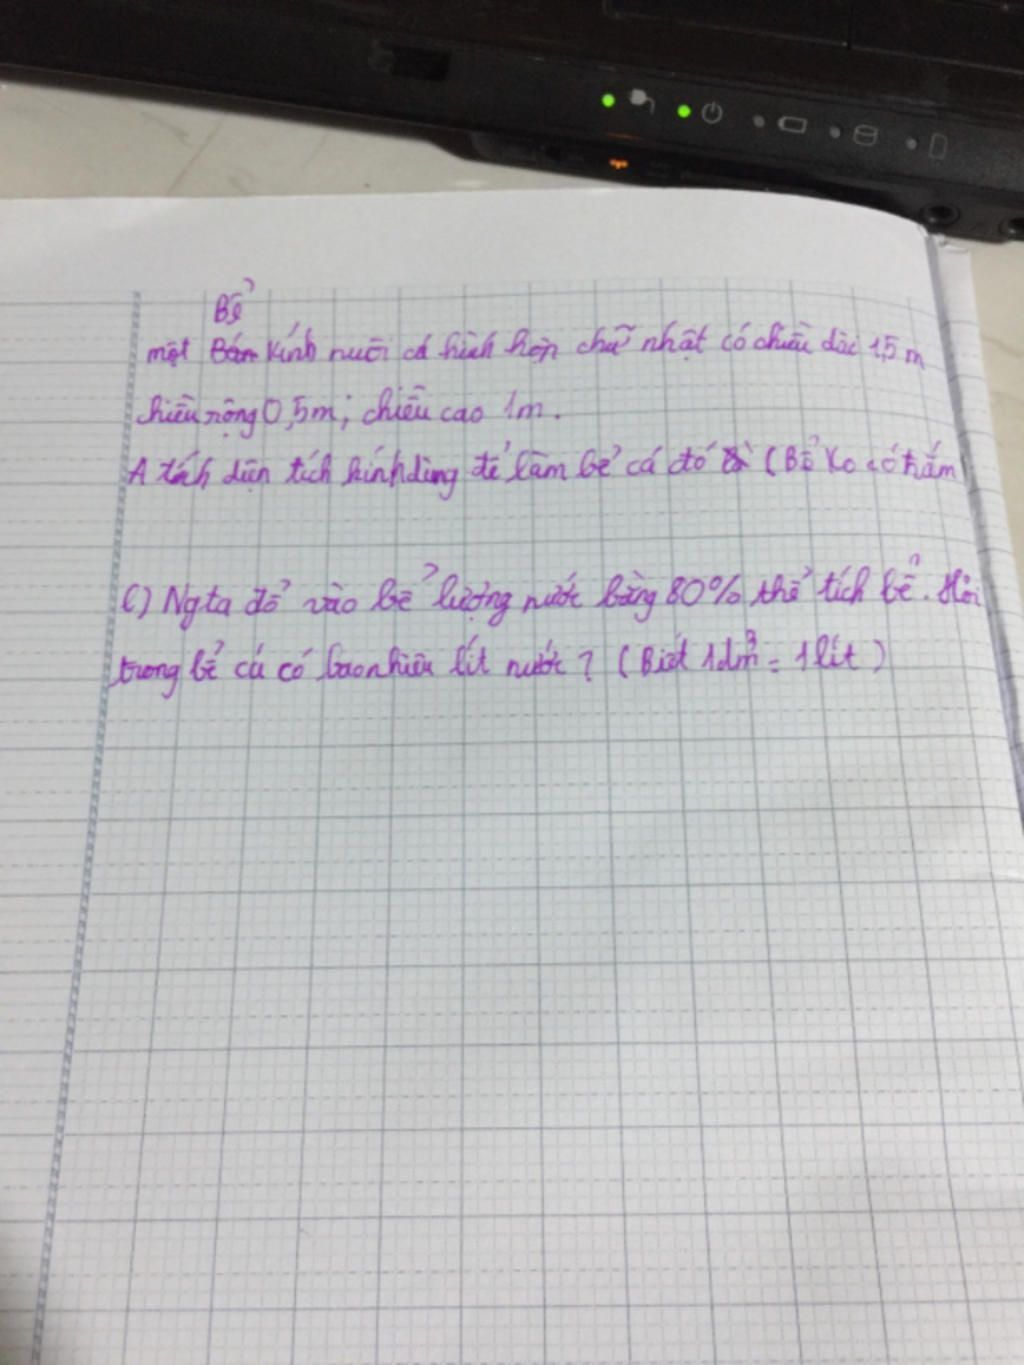 Bể
một Bán Kính nuôi cá hình hộp chữ nhật có chiều dài 1,5 m
chiều rộng 0,5m; chiều cao 1m.
A tính diện tích kính dùng để làm bể cá đó (Bể Ko có nắm
C) Ngta đổ vào bể lượng nước bằng 80% thể tích bể. Hỏi
trong bể cá có baonhiêu lít nước? (Biết 1dm³ = 1 lít)